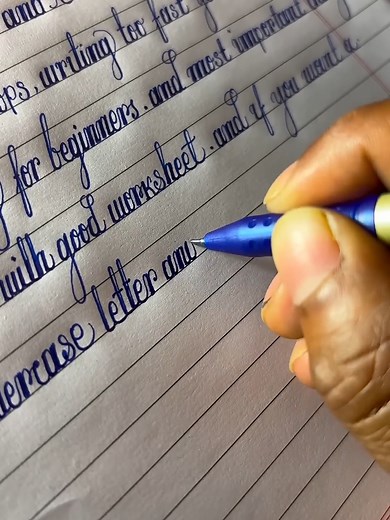 and
ops, writing too fast
for beginners. and most important
with good worksheet. and if you want a
percase letter and